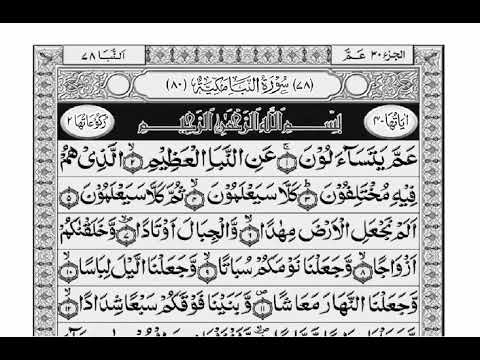 الجزء ٣٠ عمّ
النّبا ٧٨
(٧٨) سُوْرَةُ النَّبَا مَكِّيَّةٌ (٨٠)
اٰیَاتُهَا ٤٠
بِسْمِ اللّٰهِ الرَّحْمٰنِ الرَّحِیْمِ
رُكُوْعَاتُهَا ٢
عَمَّ یَتَسَآءَلُوْنَ ١ عَنِ النَّبَاِ الْعَظِیْمِ ٢ الَّذِیْ هُمْ
فِیْهِ مُخْتَلِفُوْنَ ٣ كَلَّا سَیَعْلَمُوْنَ ٤ ثُمَّ كَلَّا سَیَعْلَمُوْنَ ٥
اَلَمْ نَجْعَلِ الْاَرْضَ مِهٰدًا ٦ وَّالْجِبَالَ اَوْتَادًا ٧ وَّخَلَقْنٰكُمْ
اَزْوَاجًا ٨ وَّجَعَلْنَا نَوْمَكُمْ سُبَاتًا ٩ وَّجَعَلْنَا الَّیْلَ لِبَاسًا ١٠
وَّجَعَلْنَا النَّهَارَ مَعَاشًا ١١ وَّبَنَیْنَا فَوْقَكُمْ سَبْعًا شِدَادًا ١٢